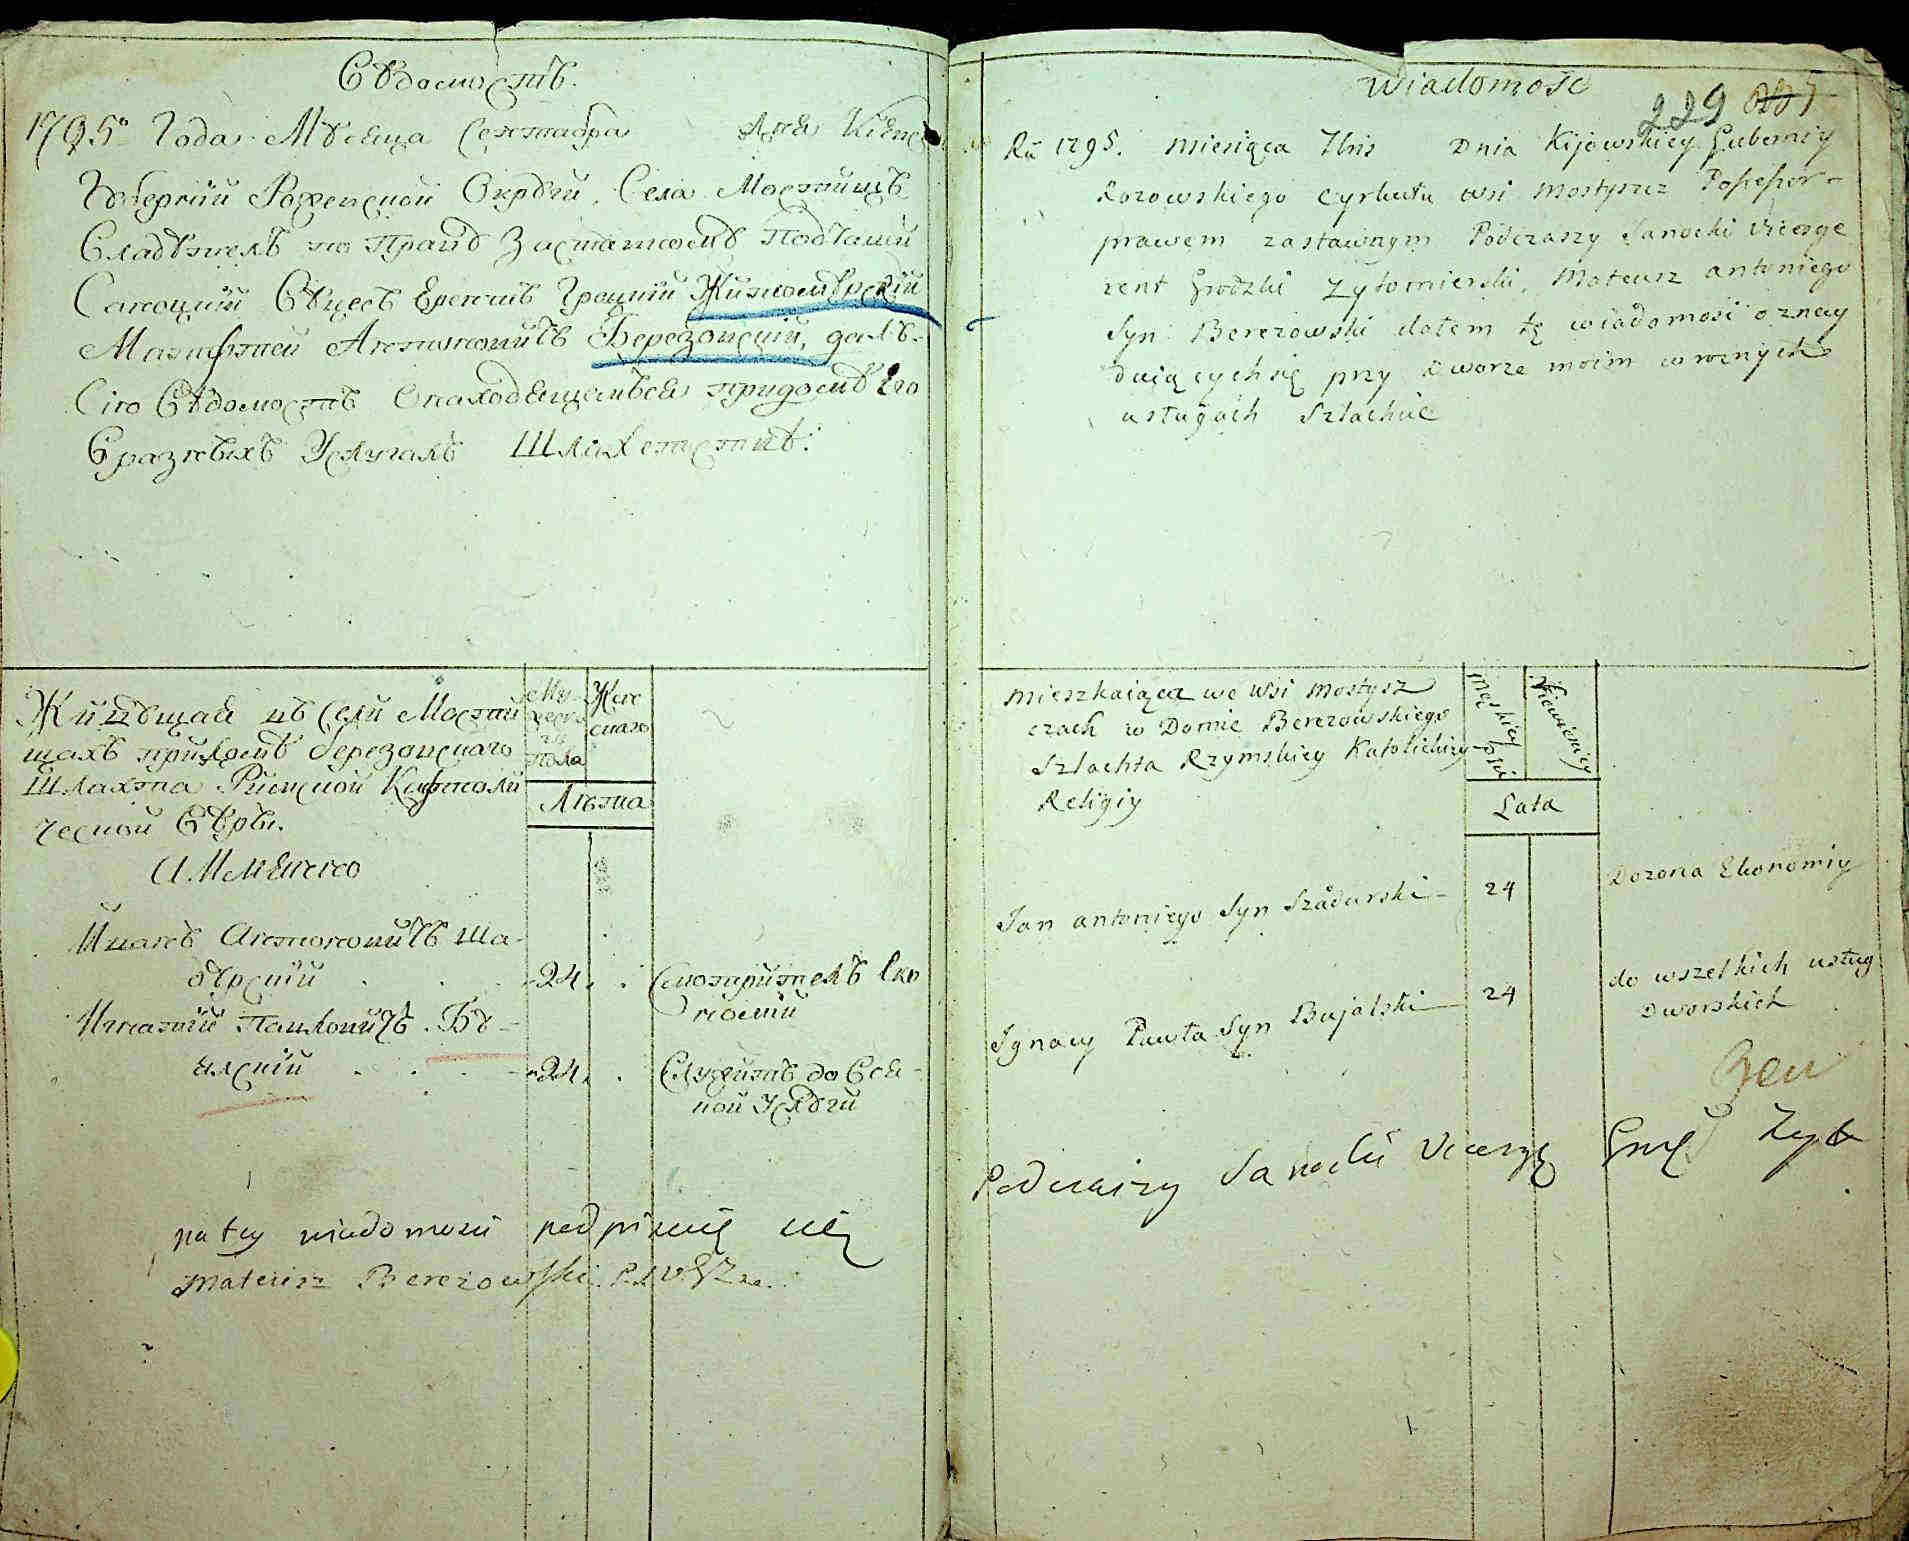 Вѣдомость.
1795го Года Мѣсяца Сентября Дня Кіевс
Губерніи Рожевской Округи, Села Мостищъ
Владѣтель по Праву Заставномъ Подчаши
Саноцкій Вѣцесъ Гроцкій Житомѣрскій
Матфѣй Антоновичъ Березовскій, далъ
Сію Вѣдомость Находящемься придомѣ Его
Вразныхъ Услугахъ Шляхетствѣ.
Живѣщай въ Сели Мости
щахъ Березовскаго
Шляхта Римской Кафтоли
ческой Вѣры.
Му-
жеска
пола
Жен
скаго
Лѣта
А Имянно
Иванъ Антоновичъ Ша-
дурскій . . . 24. . Смотритель Еко
номіи
Игнатій Павловичъ Бу-
ялскій . . . 24. . Служитъ до Вся-
кой Услуги
na tey wiadomosci podpisuię się
Mateusz Berezowski
Wiadomość
229
Ru 1795. Miesiąca 7bris Dnia Kijowskiey Gubernij
Rozowskiego Cyrkułu wsi Mostyszcz Possessor
prawem zastawnym Podczaszy Sanocki Vicesge
rent Grodzki Zytomierski, Mateusz Antoniego
Syn Berezowski dałem tę wiadomość o znay
duiących się przy dworze moim w roznych
usługach Szlachcie
Mieszkaiąca we wsi Mostysz
czach w Domie Berezowskiego
Szlachta Rzymskiey Katolickiey
Religiy
Lata
Jan Antoniego Syn Szadurski - 24 Dozorca Ekonomiy
Ignacy Pawła Syn Bujalski 24 do wszelkich usług
Dworskich
Podczaszy Sanocki